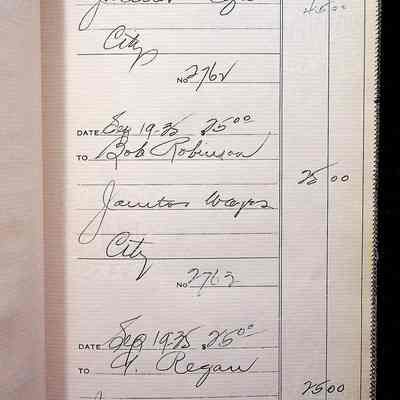 45 00
City
No 2762
DATE Sep 19-25 $25 00
TO Bob Robinson
25 00
Janitor Wages
City
No 2763
DATE Sep 19-25 $25 00
TO Regan
25 00